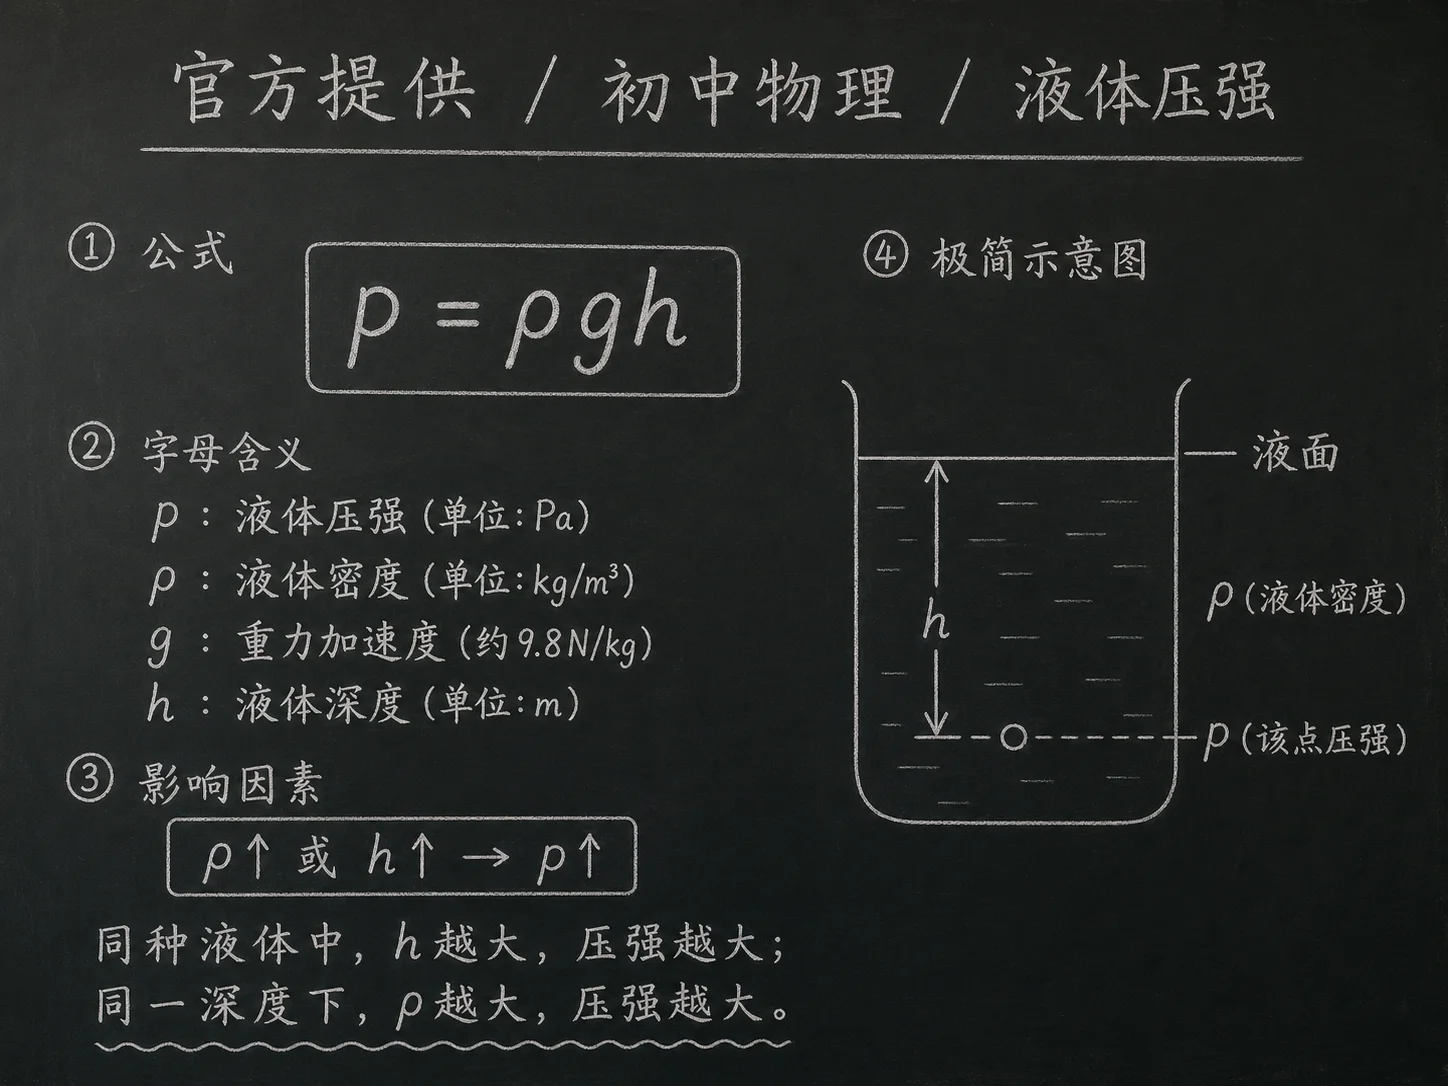 官方提供 / 初中物理 / 液体压强
① 公式
p = ρgh
② 字母含义
p : 液体压强 (单位: Pa)
ρ : 液体密度 (单位: kg/m³)
g : 重力加速度 (约 9.8 N/kg)
h : 液体深度 (单位: m)
③ 影响因素
ρ↑ 或 h↑ → p↑
同种液体中, h 越大, 压强越大;
同一深度下, ρ 越大, 压强越大。
④ 极简示意图
液面
h
ρ (液体密度)
p (该点压强)